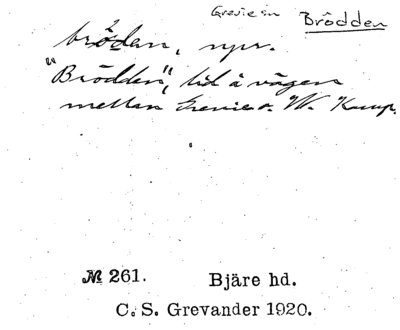 Grevie sn Brödden
brödan, npr.
"Brödden", tid å vägen
mellan Grevie o. W. Karup.
№ 261. Bjäre hd.
C. S. Grevander 1920.